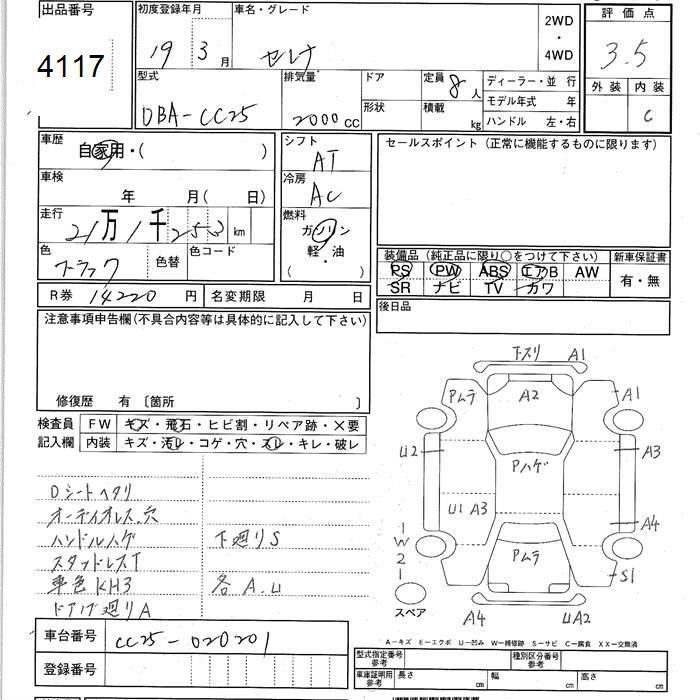 出品番号
4117
初度登録年月
19 3 月
車名・グレード
セレナ
2WD
・
4WD
評価点
3.5
外装 内装
C
型式
DBA-CC25
排気量
2000 CC
ドア
形状
定員 8 人
積載 kg
ディーラー・並 行
モデル年式 年
ハンドル 左・右
車歴
自家用・( )
車検
年 月( 日)
走行
21万1千252 km
色
ブラック
色替
色コード
シフト
AT
冷房
AC
燃料
ガソリン
・
軽・油
( )
セールスポイント(正常に機能するものに限ります)
装備品(純正品に限り○をつけて下さい)
新車保証書
PS PW ABS エアB AW
SR ナビ TV カワ
有・無
R券 14220 円
名変期限 月 日
後日品
注意事項申告欄(不具合内容等は具体的に記入して下さい)
修復歴 有 〔箇所 〕
検査員
記入欄
FW キズ・飛石・ヒビ割・リペア跡・×要
内装 キズ・汚レ・コゲ・穴・スレ・キレ・破レ
Dシートヘタリ
オーディオレス、穴
ハンドルハゲ
下廻りS
スタッドレスT
車色KH3
各A.U
ドアカゲ廻りA
下スリ A1
Pムラ A2 A1
U2 Pハゲ A3
U1 A3 A4
1
W
2
1
Pムラ
S1
スペア
A4 UA2
A-キズ E-エクボ U-凹み W-補修跡 S-サビ C-腐食 XX-交換済
車台番号
CC25-020201
登録番号
型式指定番号
参考
種別区分番号
参考
車庫証明用
参考
長さ cm 幅 cm 高さ cm